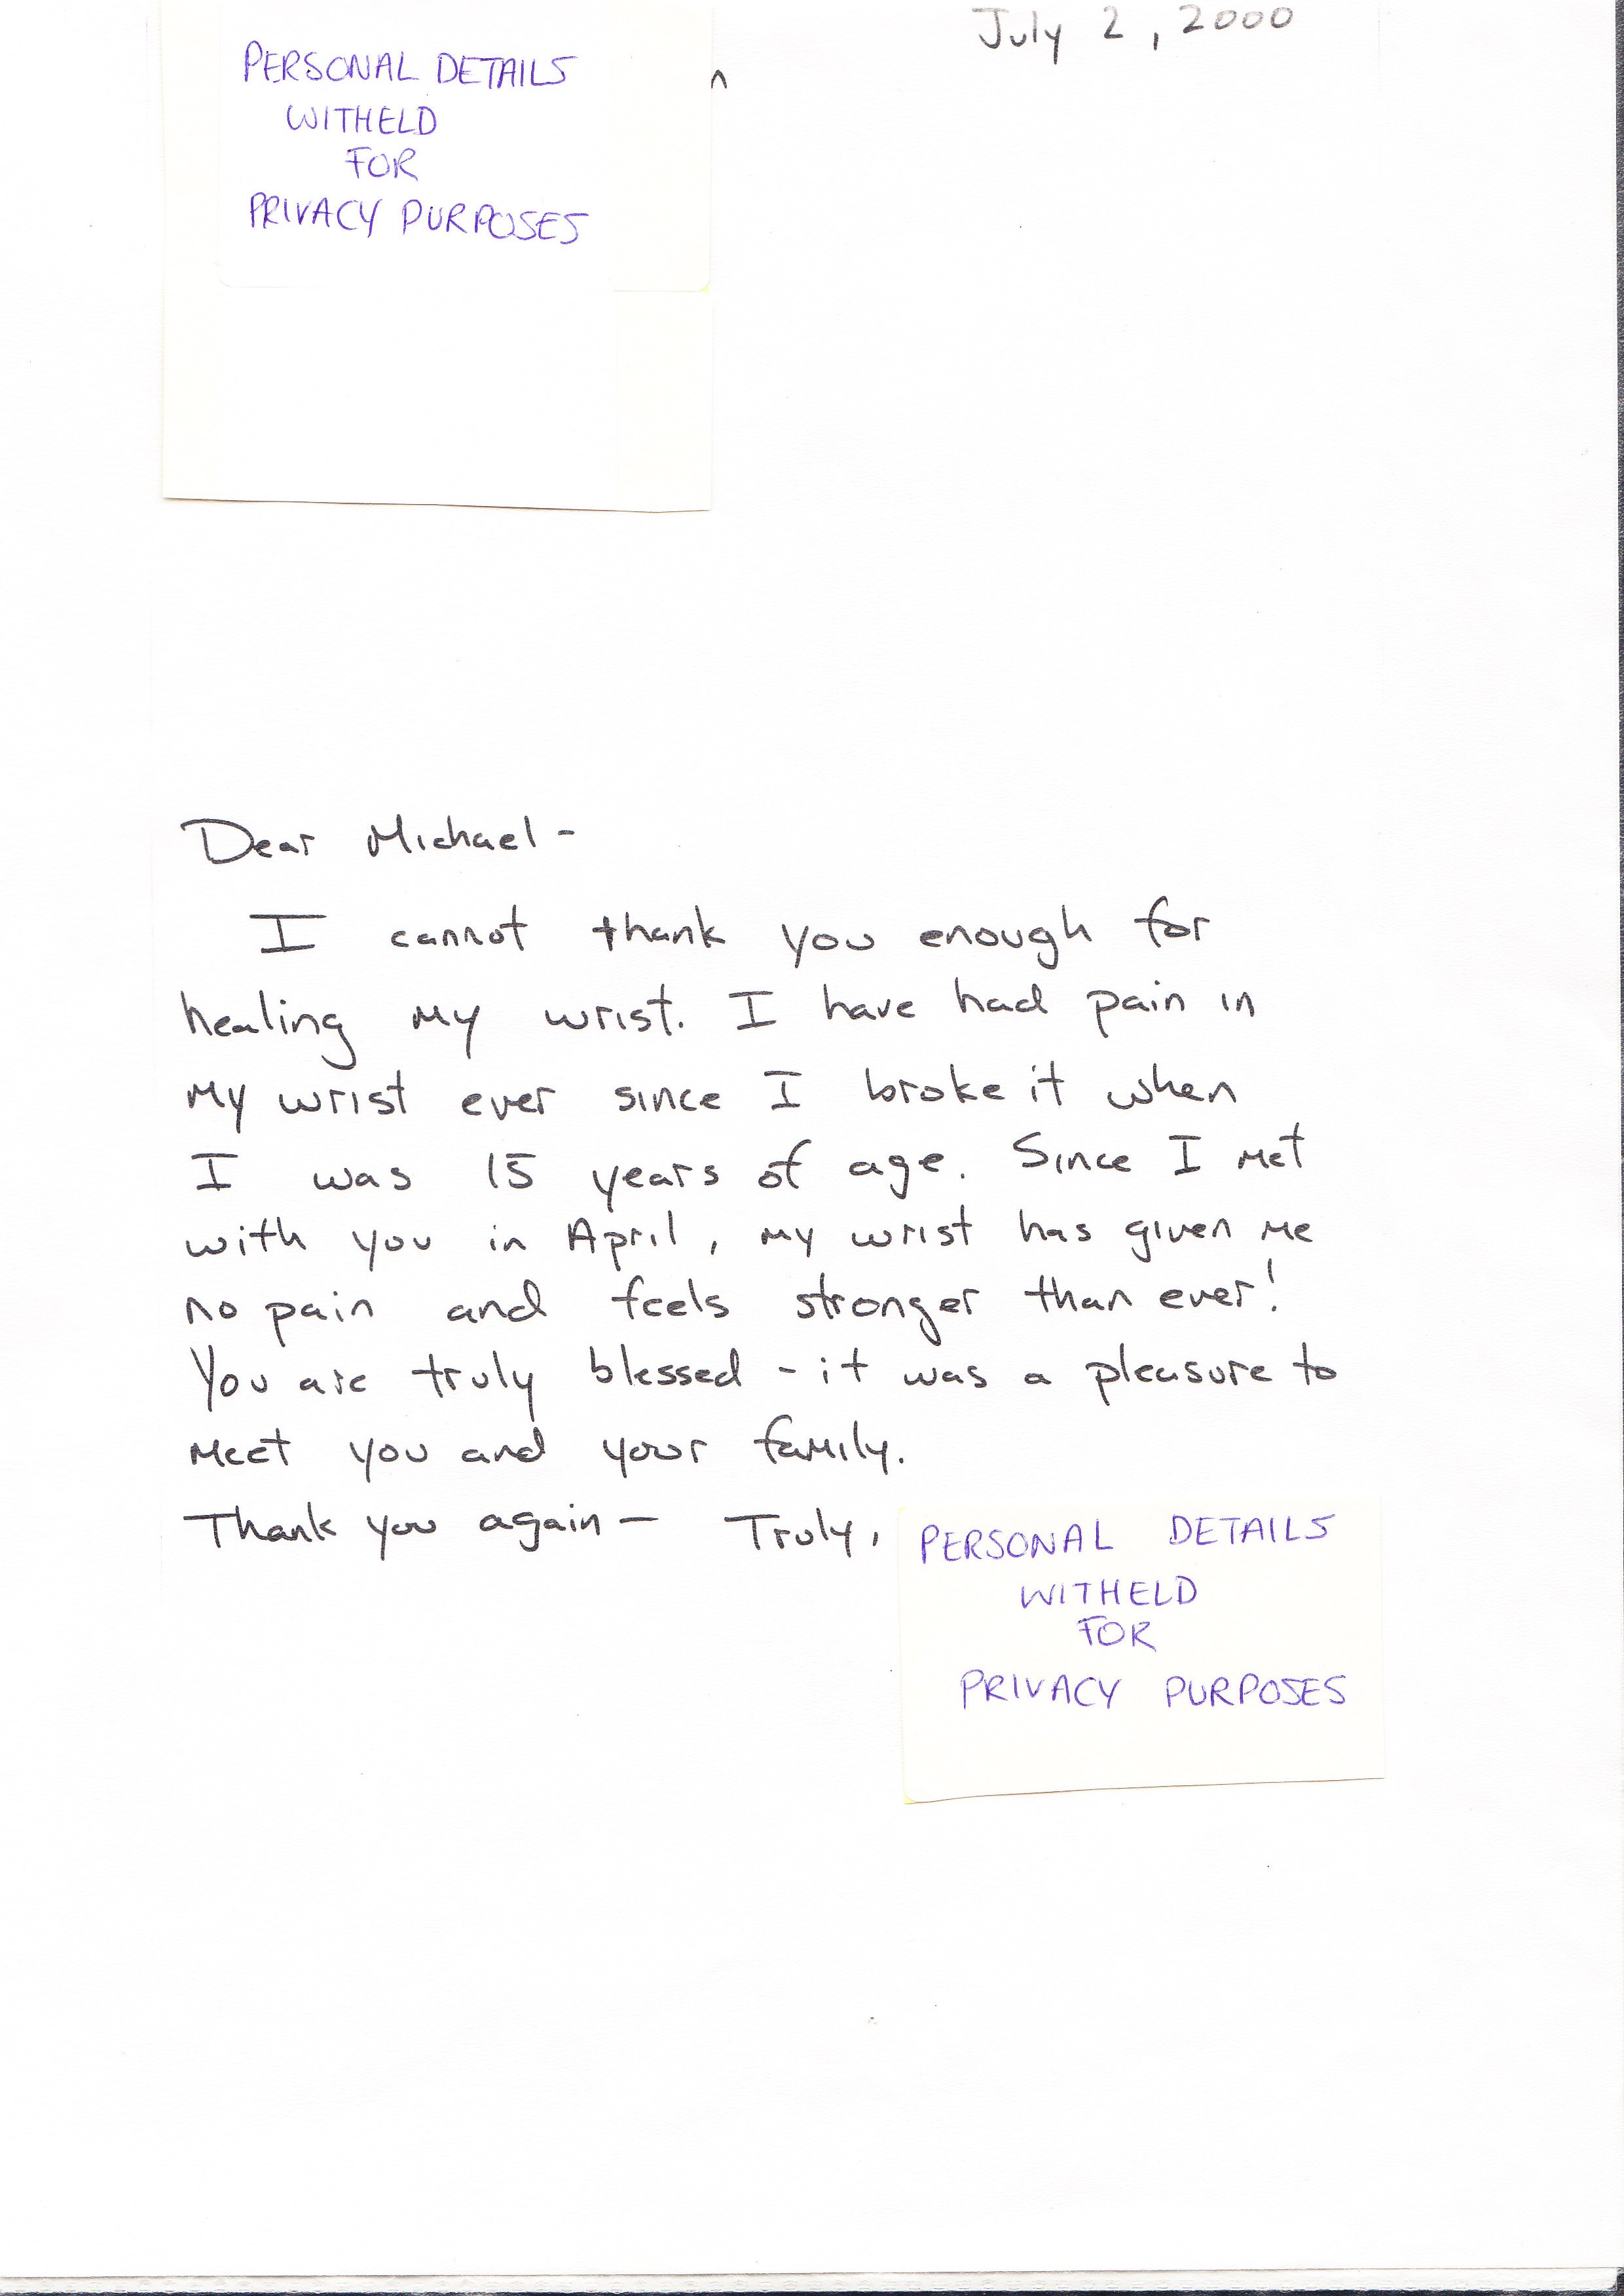 July 2, 2000
PERSONAL DETAILS
WITHELD
FOR
PRIVACY PURPOSES
Dear Michael -
I cannot thank you enough for
healing my wrist. I have had pain in
my wrist ever since I broke it when
I was 15 years of age. Since I met
with you in April, my wrist has given me
no pain and feels stronger than ever!
You are truly blessed - it was a pleasure to
meet you and your family.
Thank you again - Truly,
PERSONAL DETAILS
WITHELD
FOR
PRIVACY PURPOSES